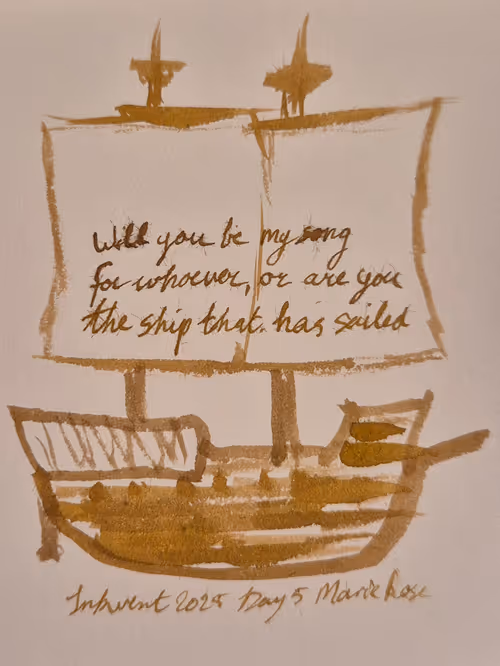 Will you be my song
for whoever, or are you
the ship that has sailed
Inkvent 2025 Day 5 Marie Rose